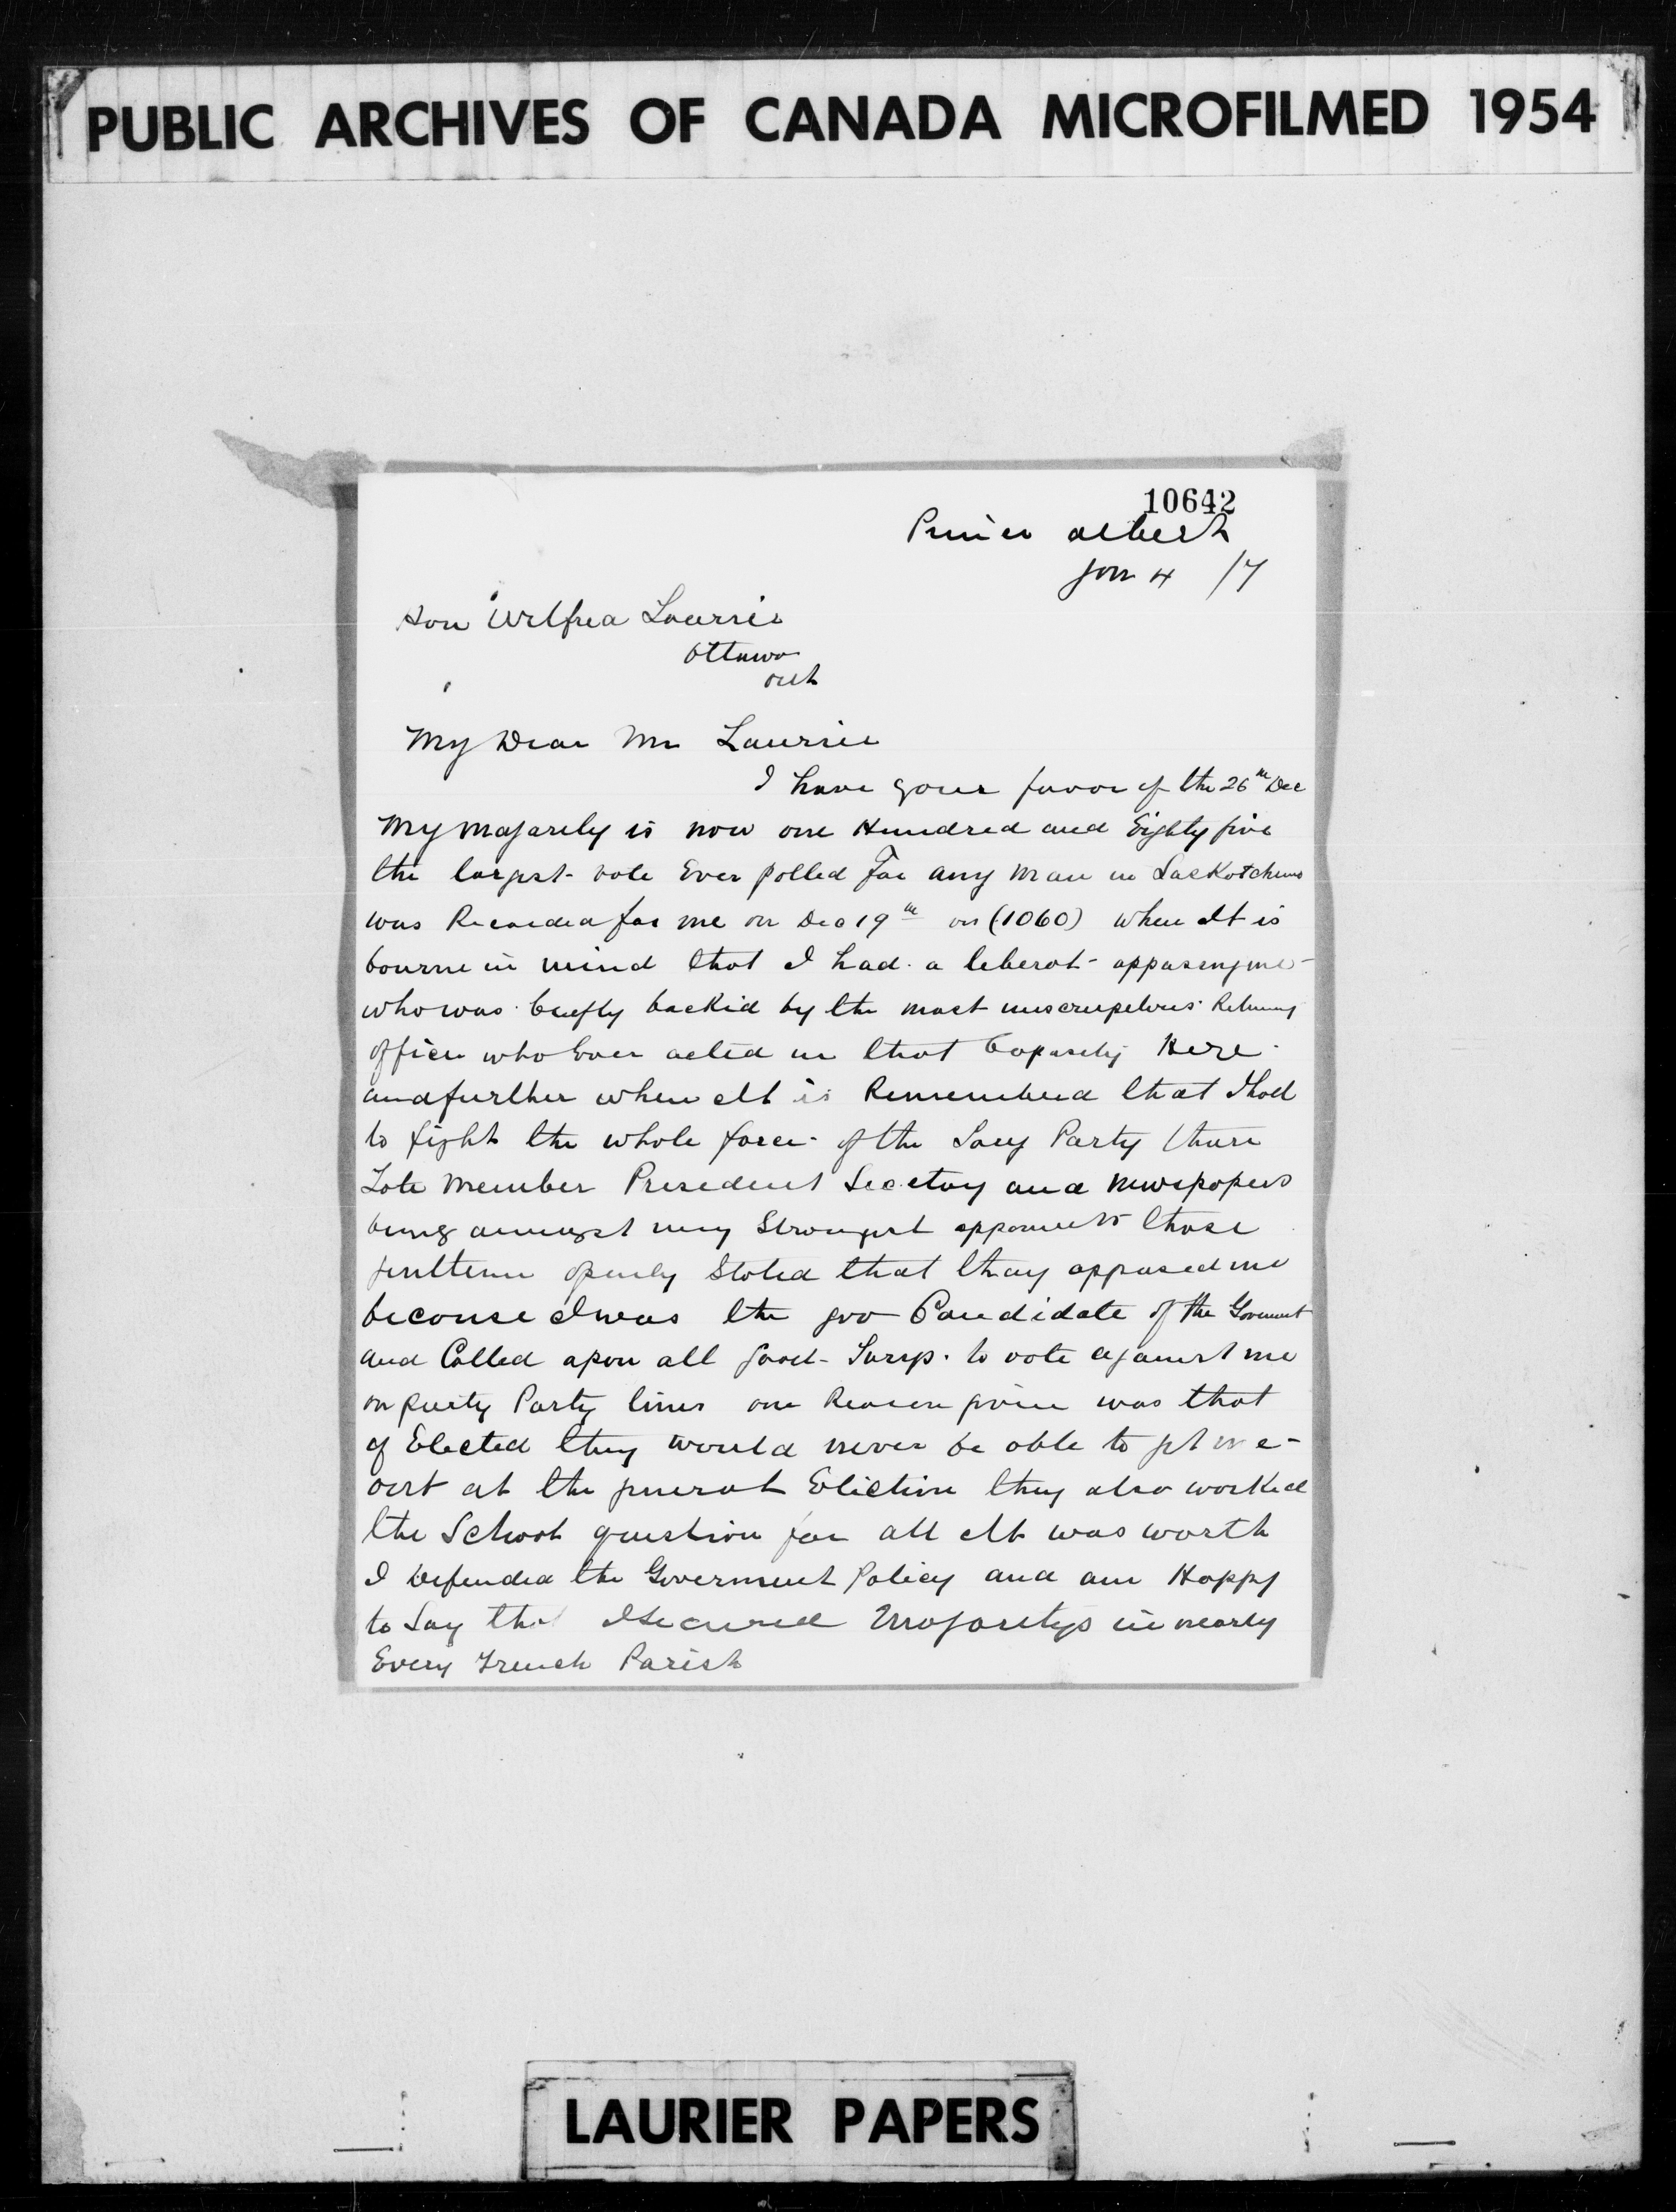 PUBLIC ARCHIVES OF CANADA MICROFILMED 1954
10642
Prince albert
Jan 4 /7
Hon Wilfred Laurier
Ottawa
ont
My Dear Mr Laurier
I have your favor of the 26th Dec
My majarity is now one Hundred and Eighty five
the largest vote Ever polled for any man in Saskatchewn
was Recorded for me on Dec 19th on (1060) when It is
bourne in mind that I had a liberal appasing me
who was backed by the most unscrupelous Returning
officer who Ever acted in that Capasity Here
and further when It is Remembered that I had
to fight the whole force of the Tory Party thare
Late Member President Secetary and Newspapers
being amongst my Strongest apponents those
gentlemen openly Stated that thay appased me
becouse I was the Candidate of the Goverment
and Called apon all good Torys to vote against me
on purity Party lines one Reason given was that
if Elected they would never be able to get me
out at the general Eliction they also worked
the School question for all It was worth
I Defended the Goverment Policy and am Happy
to Say that I Secured Majoritys in nearly
Every French Parish
LAURIER PAPERS